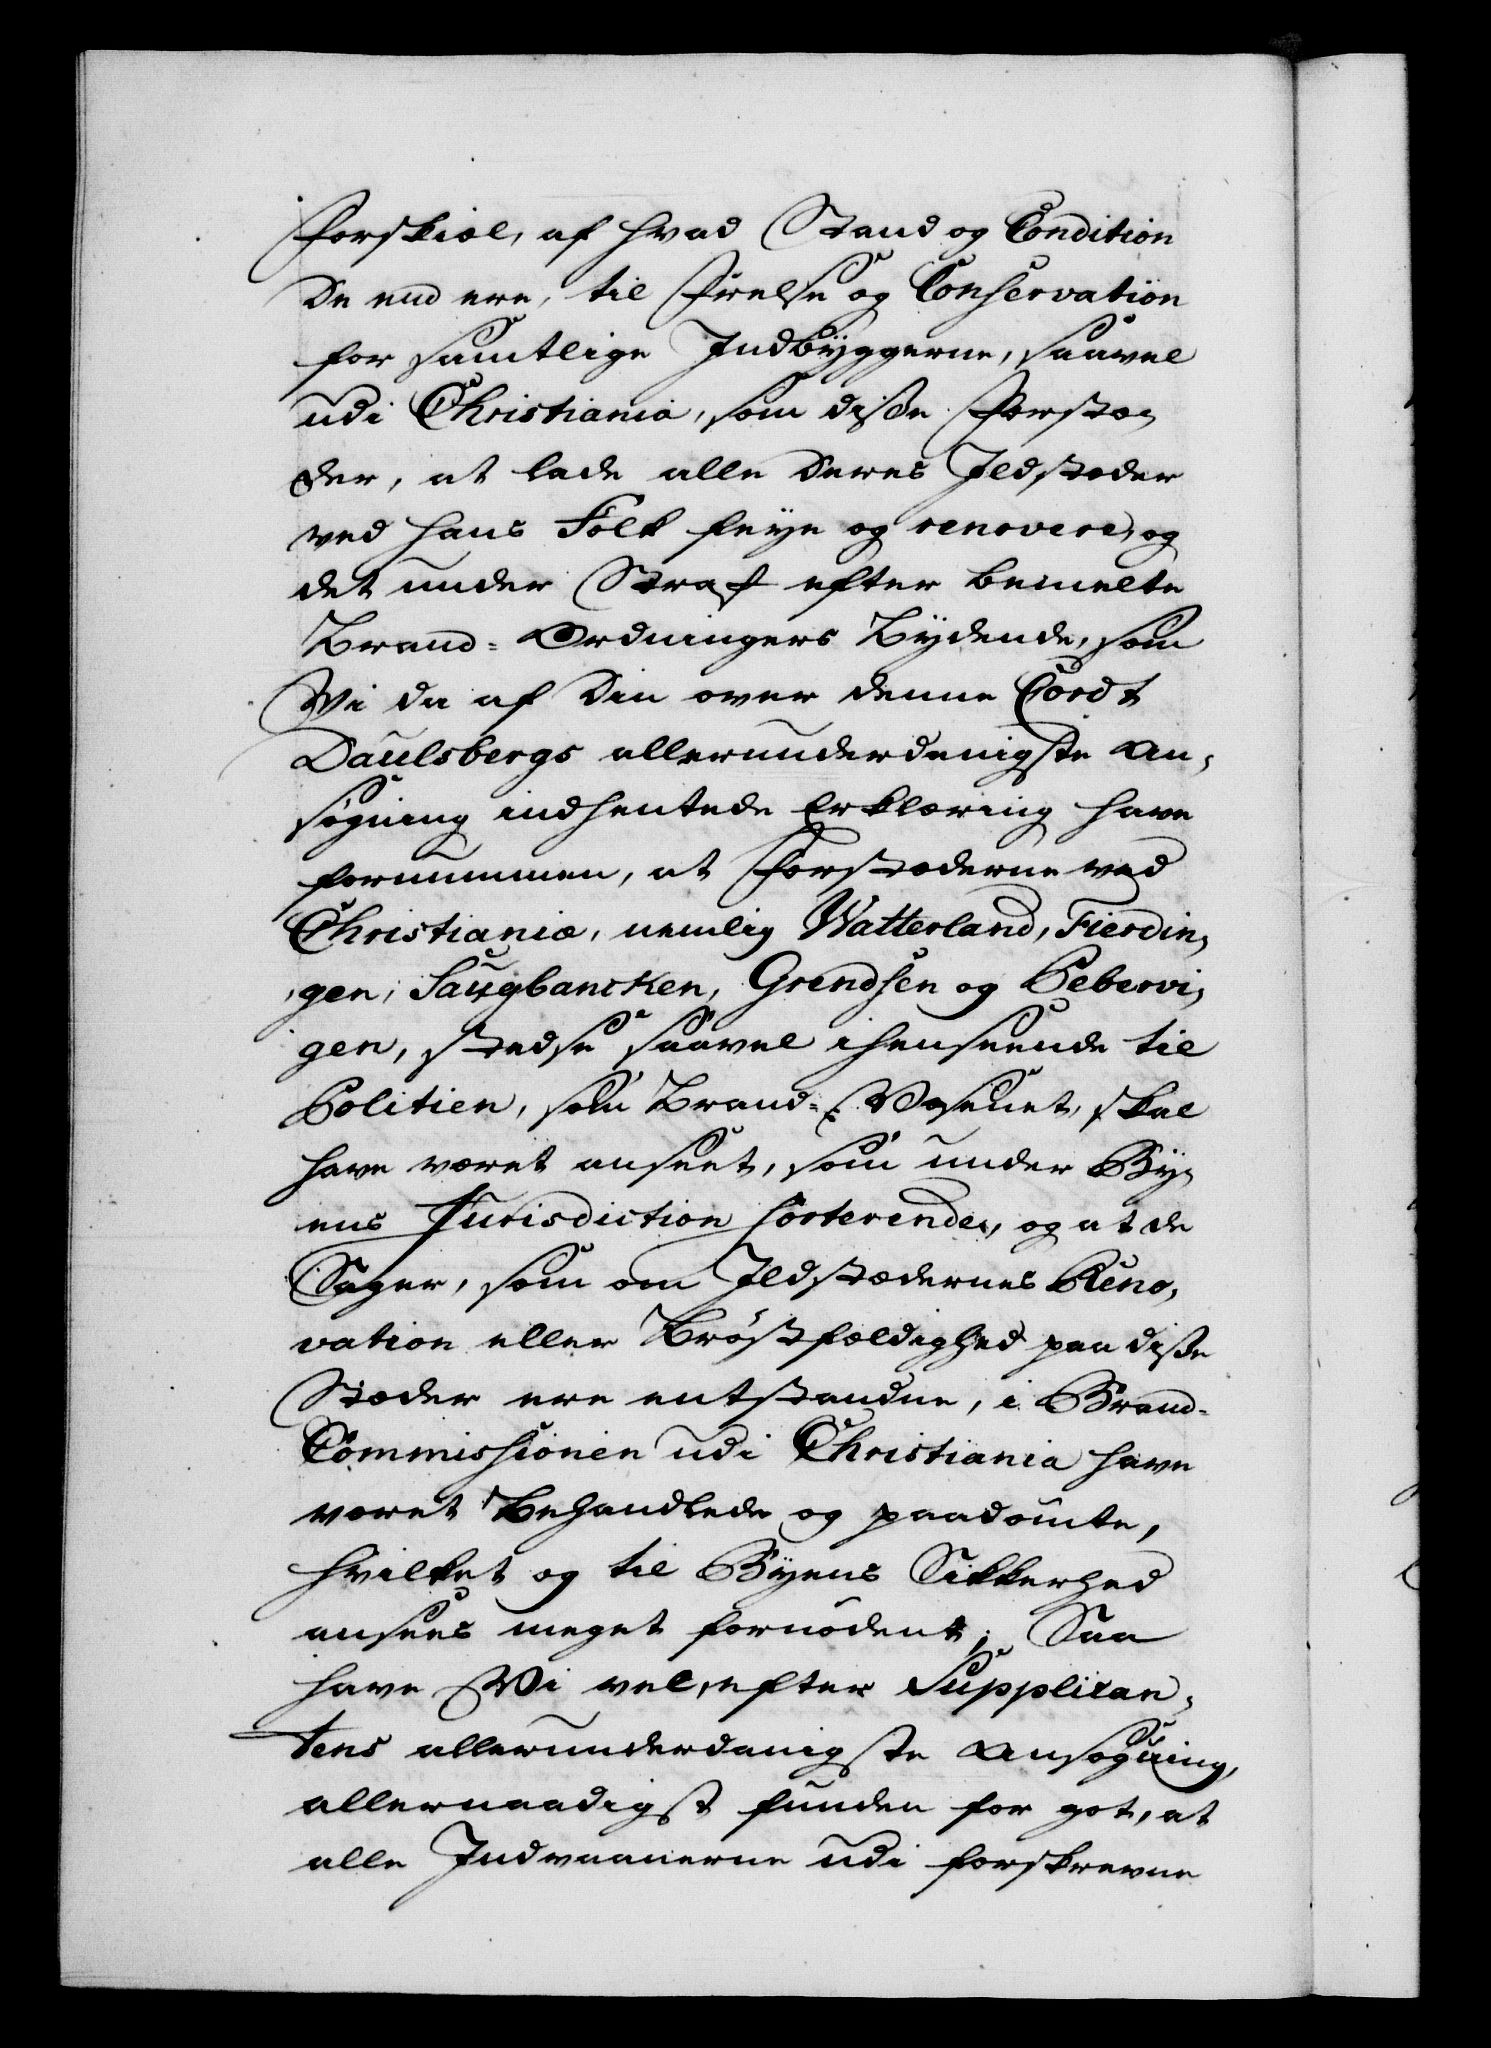 Forskiæl, af hvad Stand og Condition
De end ere, til Frelse og Conservation
for samtlige Indbyggerne, saavel
udi Christiania, som diße Forstæ-
der, at lade alle Deres Ildstæder
ved hans Folk feye og renovere, og
det under Straf efter bemelte
Brand-Ordningers Bydende, som
Vi da af Din over denne Cordt
Daulsbergs allerunderdanigste An-
søgning indhentede Erklæring have
fornummen, at Forstæderne ved
Christiania, nemlig Watterland, Fierdin-
gen, Saugbancken, Grendsen og Pebervi-
gen, stedse saavel i henseende til
Politien, som Brand-Væsenet, skal
have været anseet, som under By-
ens Jurisdiction sorterende, og at de
Sager, som om Ildstædernes Reno-
vation eller Brøstfældighed paa diße
Stæder ere entstandne, i Brand-
Commissionen udi Christiania have
været behandlede og paadømte,
hvilket og til Byens Sikkerhed
ansees meget fornødent; Saa
have Vi vel, efter Supplican-
tens allerunderdanigste Ansøgning,
allernaadigst funden for got, at
alle Indvaanerne udi forskrevne